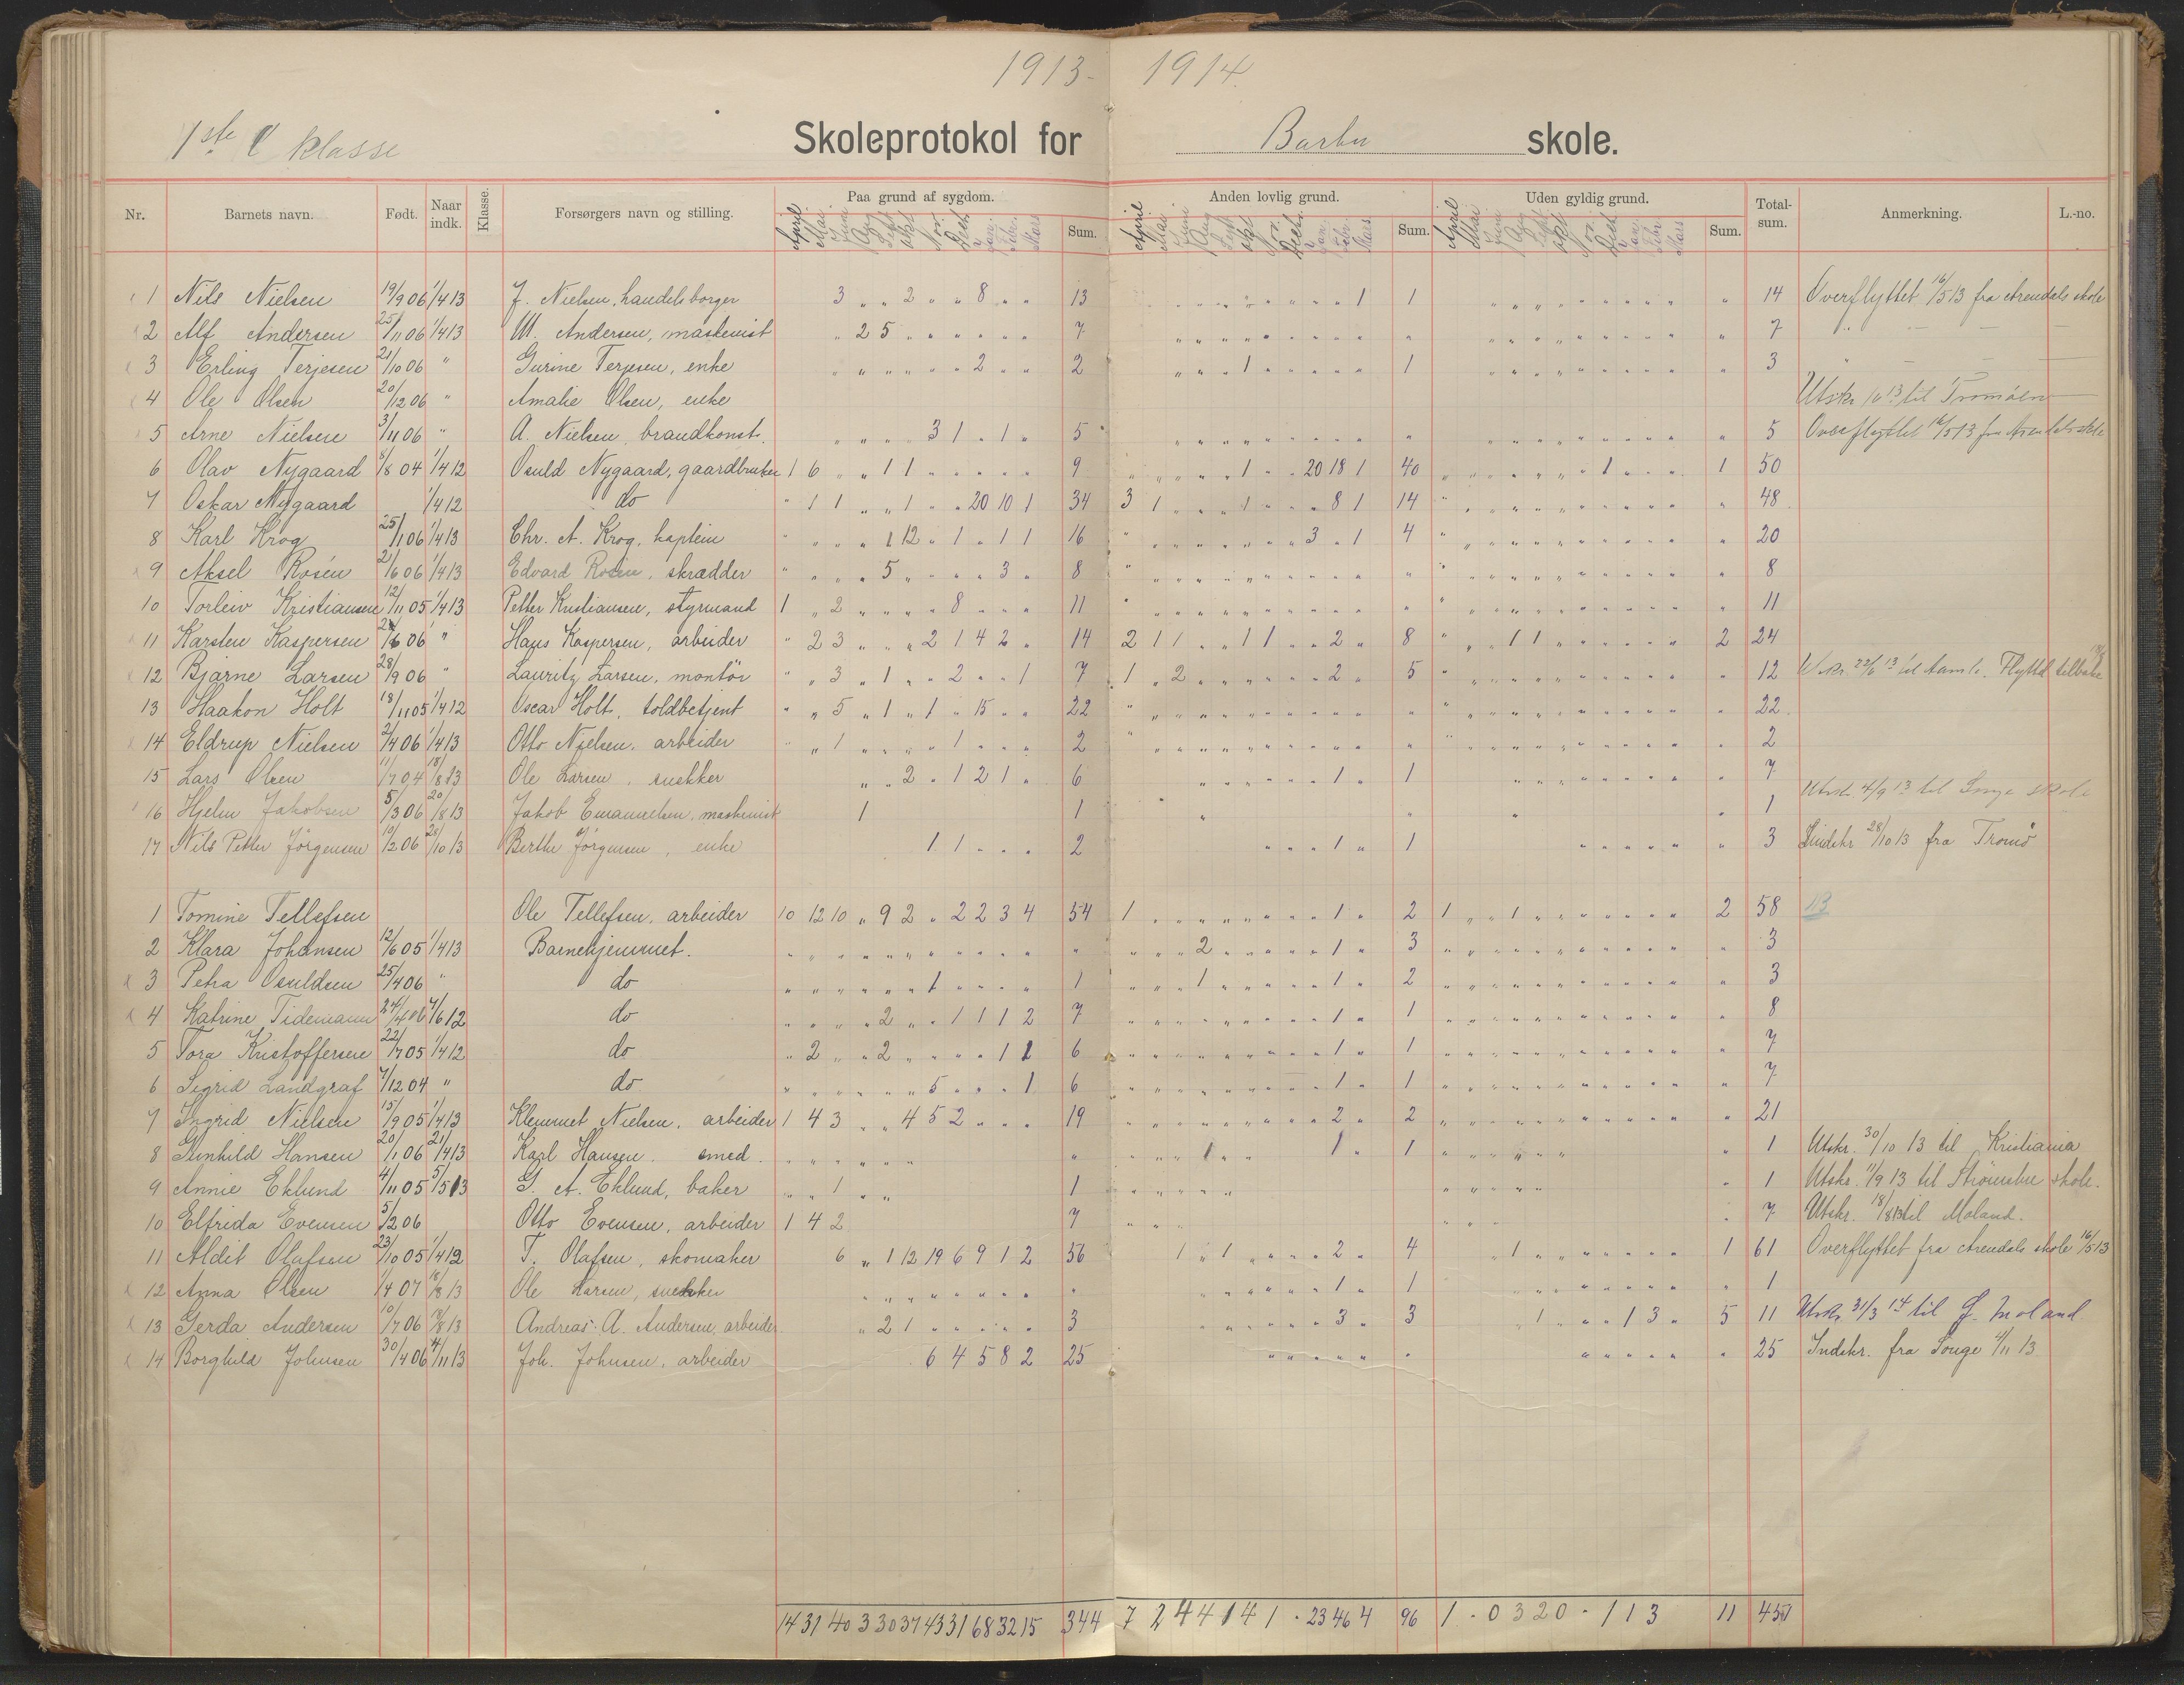 1913- 1914.
1ste klasse Skoleprotokol for Barbu skole.
Nr. Barnets navn. Født. Naar indk. Klasse. Forsørgers navn og stilling. Paa grund af sygdom. Sum. Anden lovlig grund. Sum. Uden gyldig grund. Sum. Total-sum. Anmerkning. L.-no.
1 Nils Nielsen 19/9 06 1/4 13 J. Nielsen, handelsborger 3 " " 2 " " 8 " " 13 1 1 " 14 Overflyttet 16/5 13 fra Arendals skole
2 Alf Andersen 25/11 06 1/4 13 M. Andersen, maskinist " 2 5 " " " " " " 7 " " 7 " — — —
3 Erling Terjesen 21/10 06 " Gurine Terjesen, enke " " " " " " 2 " " 2 1 1 " 3 " — — —
4 Ole Olsen 20/12 06 " Amalie Olsen, enke Utskr. til Tromøen
5 Arne Nielsen 3/11 06 " A. Nielsen, brandkonst. " " " " 3 1 " 1 " 5 " " 5 Overflyttet 16/5 13 fra Arendals skole
6 Olav Nygaard 8/8 04 1/4 12 Osuld Nygaard, gaardbruker 1 6 " " 1 1 " " " " " 9 1 " " 20 18 1 40 1 1 50
7 Oskar Nygaard 1/4 12 do " 1 1 " " 1 " " 20 10 1 34 3 1 1 8 1 14 " 48
8 Karl Krog 25/1 06 1/4 13 Chr. A. Krog, kaptein " " " " 1 12 " 1 " 1 1 16 3 " 1 4 " 20
9 Aksel Rosén 2/6 06 1/4 13 Edvard Rosén, skrædder " " " " 5 " " " " 3 " 8 " " 8
10 Torleiv Kristiansen 12/11 05 1/4 13 Petter Kristiansen, styrmand 1 " 2 " " " " 8 " " " 11 " " 11
11 Karsten Kaspersen 06 " Hans Kaspersen, arbeider " 2 3 " " " 2 1 4 2 " 14 2 1 1 " " 1 1 " " 2 " 8 1 1 2 24
12 Bjarne Larsen 28/9 06 " Lauritz Larsen, montör " " 3 " 1 " " 2 " " 1 7 1 " 2 2 " 5 " 12 Utskr. 22/6 13 til Flyttet tilbake
13 Haakon Holt 18/11 05 1/4 12 Oscar Holt, toldbetjent " " 5 " 1 " 1 " 15 " " 22 " " 22
14 Eldrup Nielsen 2/4 06 1/4 13 Otto Nielsen, arbeider " " 1 " " " " 1 " " " 2 " " 2
15 Lars Olsen 11/7 04 18/8 13 Ole Larsen, snekker " " 2 " 1 2 1 " 6 1 " 1 " 7
16 Hjelm Jakobsen 5/3 06 20/8 13 Jakob Emanuelsen, maskinist 1 1 " " 1 Utskr. 4/9 13 til Songe skole
17 Nils Petter Jörgensen 10/2 06 28/10 13 Berthe Jörgensen, enke 1 1 " " " 2 1 " 1 " 3 Indskr 28/10 13 fra Tromö
1 Tomine Tellefsen Ole Tellefsen, arbeider 10 12 10 " 9 2 " 2 2 3 4 54 1 1 " 2 1 " " 1 2 58 13
2 Klara Johansen 12/6 05 1/4 13 Barnehjemmet. " 2 1 " 3 " 3
3 Petra Osuldsen 25/4 06 " do " " " " " " 1 " " " " 1 1 1 " 2 " 3
4 Katrine Tidemann 24/4 06 7/6 12 do " " " " 2 " " 1 1 1 2 7 1 " 1 " 8
5 Tora Kristoffersen 22/7 05 1/4 12 do " 2 " " 2 " " " " 1 1 6 1 " 1 " 7
6 Sigrid Landgraf 7/12 04 " do " " " " " " 5 " " " 1 6 1 " 1 " 7
7 Ingrid Nielsen 15/9 05 1/4 13 Klemmet Nielsen, arbeider 1 4 3 " " 4 5 2 " " " 19 2 " 2 " 21
8 Gunhild Hansen 20/1 06 21/4 13 Karl Hansen smed. " " " " " " " 1 1 " 1 " 1 Utskr. 30/10 13 til Kristiania
9 Annie Eklund 4/11 05 5/5 13 G. A. Eklund, baker " " 1 " " 1 " 1 Utskr. 11/9 13 til Strömsbu skole.
10 Elfrida Evensen 5/2 06 Otto Evensen, arbeider 1 4 2 7 " 7 Utskr. 18/8 13 til Moland.
11 Aldit Olafsen 23/10 05 1/4 12 T. Olafsen, skomaker 6 " 1 12 19 6 9 1 2 56 1 " 1 2 " 4 1 1 61 Overflyttet fra Arendals skole 16/5 13
12 Anna Olsen 1/4 07 18/8 13 Ole Larsen, snekker " 1 " 1 " 1
13 Gerda Andersen 10/7 06 18/8 13 Andreas A. Andersen, arbeider " 2 1 " " " " " 3 3 " 3 1 " " 1 3 " 5 11 Utskr. 31/3 14 til Ø. Moland
14 Borghild Johnsen 30/4 06 4/11 13 Joh. Johnsen, arbeider 6 4 5 8 2 25 " " 25 Indskr. fra Songe 4/11 13
14 31 40 3 30 37 43 31 68 32 15 344 7 2 4 4 1 4 1 " 23 46 4 96 1 - 0 3 2 0 - 1 1 3 11 451